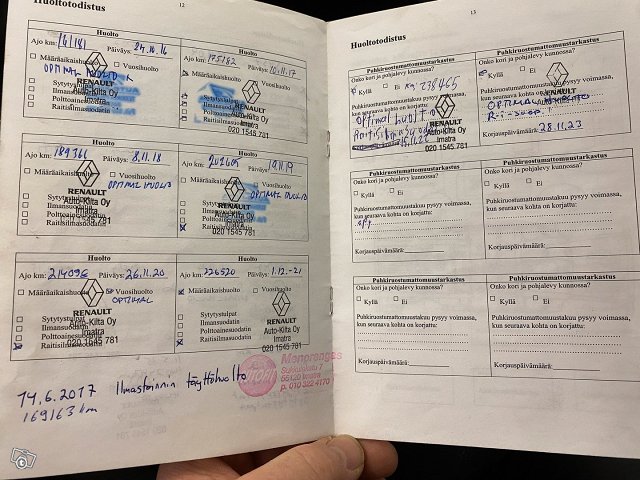 Huoltotodistus
12
Huolto
Ajo km: 161181 Päiväys: 24.10.16
Määräaikaishuolto Vuosihuolto
OPTIMAL HUOLTO
Sytytystulpat
Ilmansuodatin
Polttoainesuodatin
Raitisilmasuodatin
RENAULT
Auto-Kilta Oy
Imatra
020 1545 781
Huolto
Ajo km: 175182 Päiväys: 10.11.17
Määräaikaishuolto Vuosihuolto
Sytytystulpat
Ilmansuodatin
Polttoainesuodatin
Raitisilmasuodatin
RENAULT
Auto-Kilta Oy
Imatra
020 1545 781
Huolto
Ajo km: 189361 Päiväys: 8.11.18
Määräaikaishuolto Vuosihuolto
OPTIMAL HUOLTO
Sytytystulpat
Ilmansuodatin
Polttoainesuodatin
Raitisilmasuodatin
RENAULT
Auto-Kilta Oy
Imatra
020 1545 781
Huolto
Ajo km: 201605 Päiväys: 19.11.19
Määräaikaishuolto Vuosihuolto
OPTIMAL HUOLTO
Sytytystulpat
Ilmansuodatin
Polttoainesuodatin
Raitisilmasuodatin
RENAULT
Auto-Kilta Oy
Imatra
020 1545 781
Huolto
Ajo km: 214096 Päiväys: 26.11.20
Määräaikaishuolto Vuosihuolto
OPTIMAL
Sytytystulpat
Ilmansuodatin
Polttoainesuodatin
Raitisilmasuodatin
RENAULT
Auto-Kilta Oy
Imatra
020 1545 781
Huolto
Ajo km: 226520 Päiväys: 1.12.-21
Määräaikaishuolto Vuosihuolto
Sytytystulpat
Ilmansuodatin
Polttoainesuodatin
Raitisilmasuodatin
RENAULT
Auto-Kilta Oy
Imatra
020 1545 781
14.6.2017 Ilmastoinnin täyttöhuolto
169163 km
Monorengas
Sukkulakatu 7
55120 Imatra
p. 010 322 4170
13
Huoltotodistus
Puhkiruostumattomuustarkastus
Onko kori ja pohjalevy kunnossa?
Kyllä Ei 238465
Puhkiruostumattomuustakuu pysyy voimassa,
kun seuraava kohta on korjattu:
Optimal huolto
Raitisilmasuodatin
15.11.22
RENAULT
Auto-Kilta Oy
Imatra
020 1545 781
Puhkiruostumattomuustarkastus
Onko kori ja pohjalevy kunnossa?
Kyllä Ei
Puhkiruostumattomuustakuu pysyy voimassa,
kun seuraava kohta on korjattu:
OPTIMAL HUOLTO
RENAULT
Korjauspäivämäärä: 28.11.23
Puhkiruostumattomuustarkastus
Onko kori ja pohjalevy kunnossa?
Kyllä Ei
Puhkiruostumattomuustakuu pysyy voimassa,
kun seuraava kohta on korjattu:
Korjauspäivämäärä:
Puhkiruostumattomuustarkastus
Onko kori ja pohjalevy kunnossa?
Kyllä Ei
Puhkiruostumattomuustakuu pysyy voimassa,
kun seuraava kohta on korjattu:
Korjauspäivämäärä:
Puhkiruostumattomuustarkastus
Onko kori ja pohjalevy kunnossa?
Kyllä Ei
Puhkiruostumattomuustakuu pysyy voimassa,
kun seuraava kohta on korjattu:
Korjauspäivämäärä:
Puhkiruostumattomuustarkastus
Onko kori ja pohjalevy kunnossa?
Kyllä Ei
Puhkiruostumattomuustakuu pysyy voimassa,
kun seuraava kohta on korjattu:
Korjauspäivämäärä: